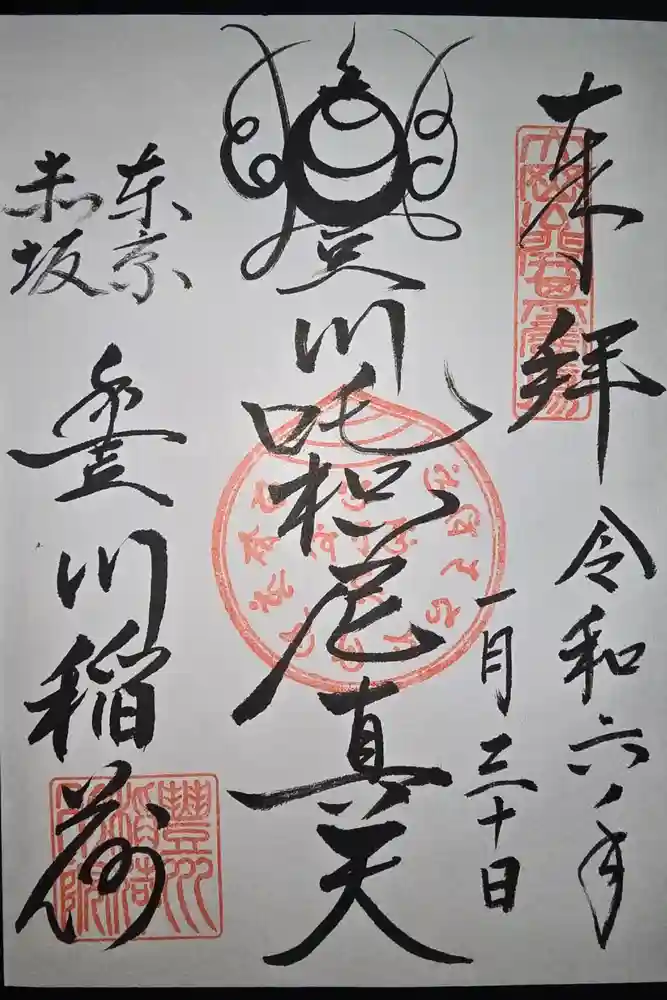 来拝
令和六年
一月三十日
豊川吒枳尼真天
東京
赤坂
豊川稲荷